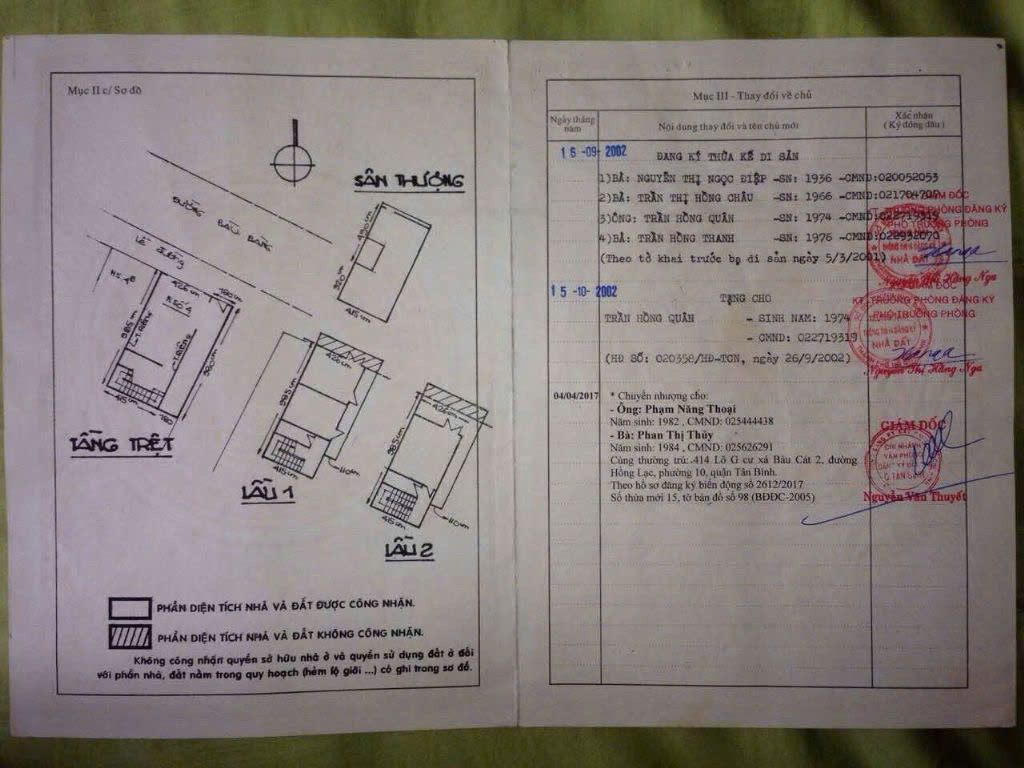 Mục II c/ Sơ đồ
SÂN THƯỢNG
ĐƯỜNG BÀU BÀNG
LỀ đường
HS. 4B
426 cm
190 cm
K SỐ 4
985 cm
T RIÊNG
T RIÊNG
415 cm
190
TẦNG TRỆT
490 cm
320 cm
415 cm
426 cm
995 cm
415 cm
110 cm
LẦU 1
426 cm
985 cm
415 cm
110 cm
LẦU 2
PHẦN DIỆN TÍCH NHÀ VÀ ĐẤT ĐƯỢC CÔNG NHẬN.
PHẦN DIỆN TÍCH NHÀ VÀ ĐẤT KHÔNG CÔNG NHẬN.
Không công nhận quyền sở hữu nhà ở và quyền sử dụng đất ở đối
với phần nhà, đất nằm trong quy hoạch (hẻm lộ giới ...) có ghi trong sơ đồ.
Mục III - Thay đổi về chủ
Ngày tháng năm
Nội dung thay đổi và tên chủ mới
Xác nhận
( Ký đóng dấu )
16-09-2002
ĐANG KÝ THỪA KẾ DI SẢN
1)BÀ: NGUYỄN THỊ NGỌC ĐIỆP -SN: 1936 -CMND:020052053
2)BÀ: TRẦN THỊ HỒNG CHÂU -SN: 1966 -CMND:021704707
3)ÔNG: TRẦN HỒNG QUÂN -SN: 1974 -CMND:022719319
4)BÀ: TRẦN HỒNG THANH -SN: 1976 -CMND:022932070
(Theo tờ khai trước bạ di sản ngày 5/3/2001)
GIÁM ĐỐC
TRƯỞNG PHÒNG ĐĂNG KÝ
PHÓ TRƯỞNG PHÒNG
NHÀ ĐẤT
Nguyễn Thị Hằng Nga
15-10-2002
TẶNG CHO
TRẦN HỒNG QUÂN - SINH NAM: 1974
- CMND: 022719319
(HĐ SỐ: 020358/HĐ-TCN, ngày 26/9/2002)
GIÁM ĐỐC
KT. TRƯỞNG PHÒNG ĐĂNG KÝ
PHÓ TRƯỞNG PHÒNG
NHÀ ĐẤT
Nguyễn Thị Hằng Nga
04/04/2017
* Chuyển nhượng cho:
- Ông: Phạm Năng Thoại
Năm sinh: 1982 , CMND: 025444438
- Bà: Phan Thị Thủy
Năm sinh: 1984 , CMND: 025626291
Cùng thường trú: 414 Lô G cư xá Bàu Cát 2, đường
Hồng Lạc, phường 10, quận Tân Bình.
Theo hồ sơ đăng ký biến động số 2612/2017
Số thửa mới 15, tờ bản đồ số 98 (BĐĐC-2005)
GIÁM ĐỐC
CHI NHÁNH
VĂN PHÒNG
Nguyễn Văn Thuyết